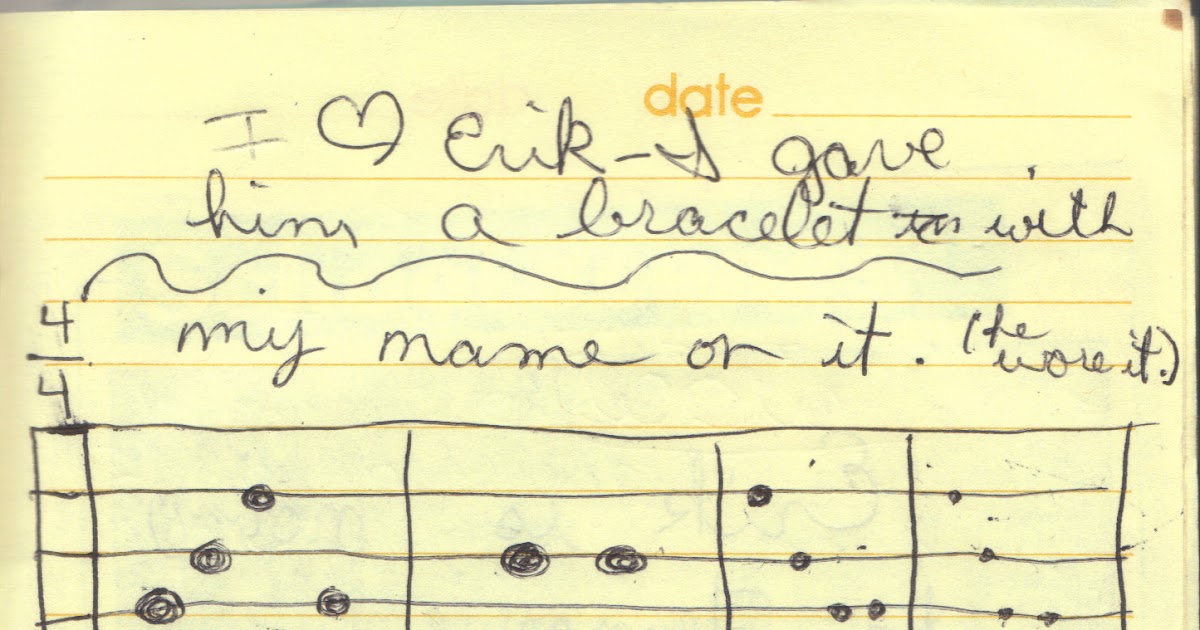 date
I ♡ Erik - I gave
him a bracelet with
my name on it. (he
wore it.)
4
4